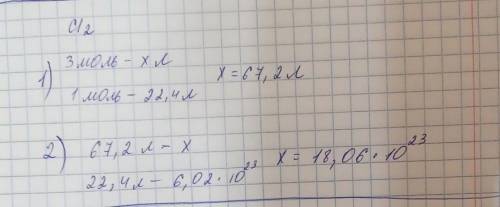 Cl2
1) 3 моль – х л
1 моль – 22,4 л х = 67,2 л
2) 67,2 л – х
22,4 л – 6,02 · 10^23 х = 18,06 · 10^23